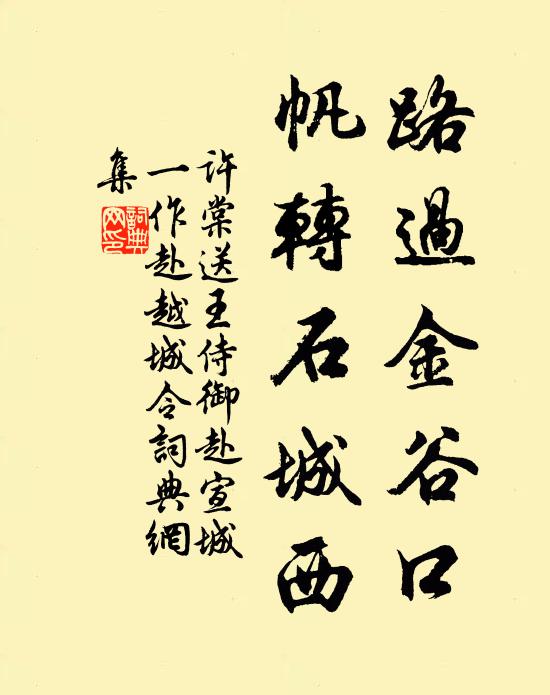 路過金谷口
帆轉石城西
許棠送王侍御赴宣城
一作赴越城令詞典網
集
詞典網印